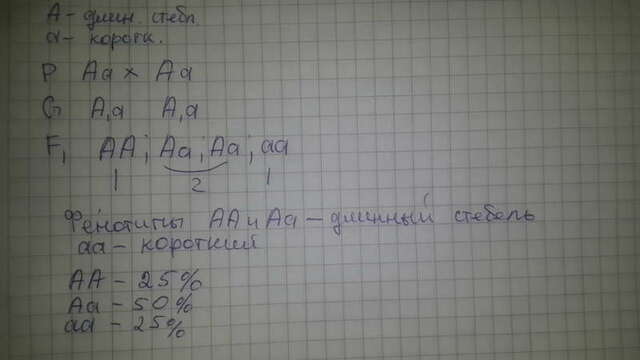 A - длин. стебл.
a - коротк.
P Aa × Aa
G A,a A,a
F, AA; Aa; Aa; aa
1 2 1
Фенотипы AA и Aa - длинный стебель
aa - короткий
AA - 25%
Aa - 50%
aa - 25%